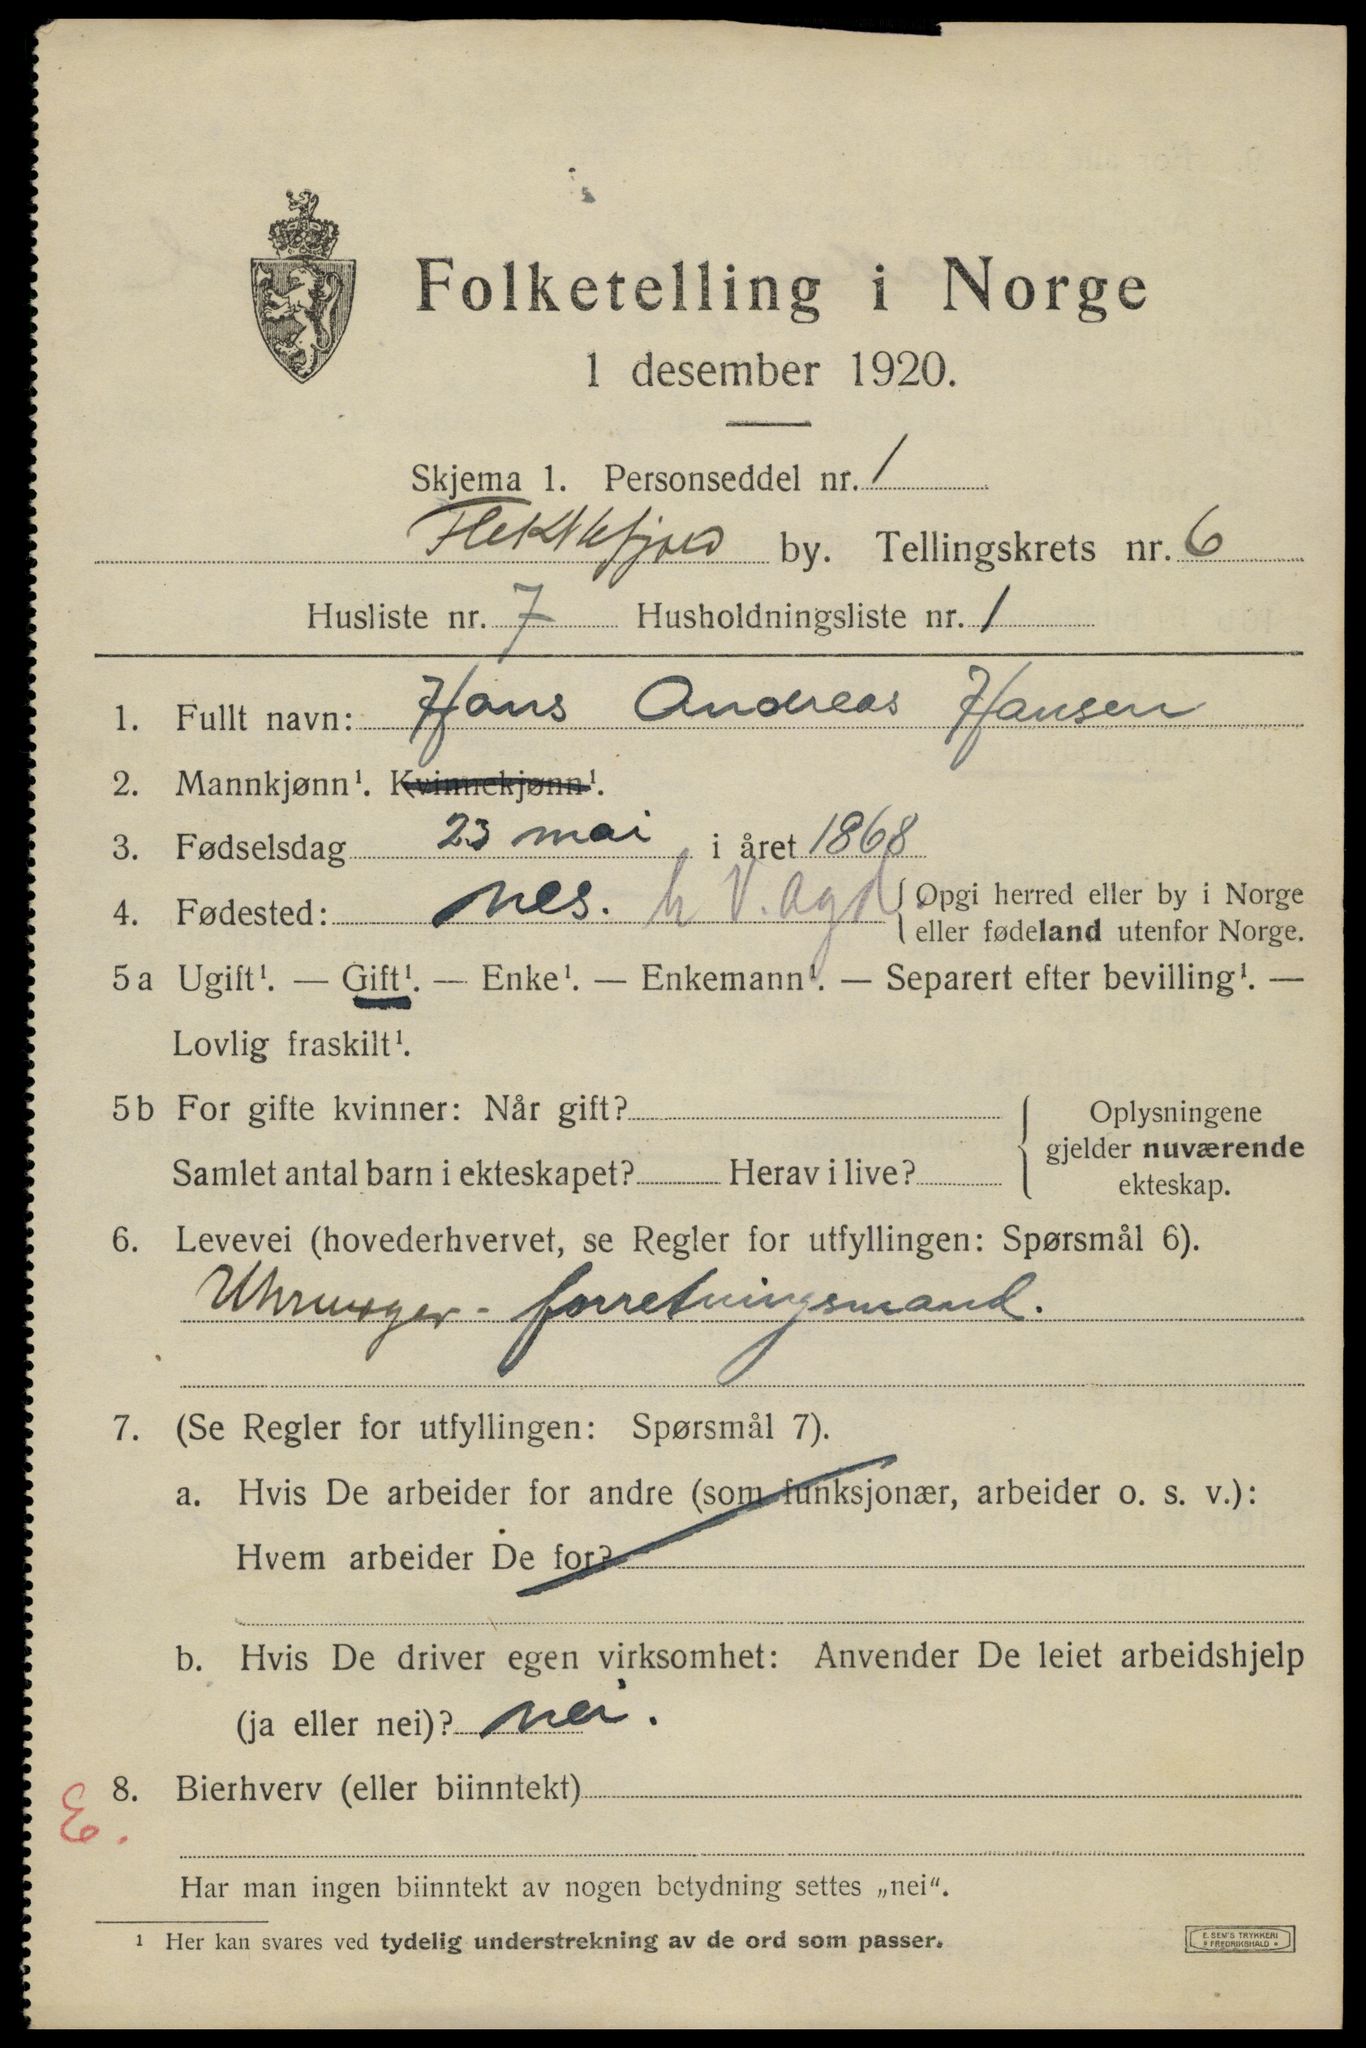 Folketelling i Norge
1 desember 1920.
Skjema 1. Personseddel nr. 1
Flekkefjord by. Tellingskrets nr. 6
Husliste nr. 7 Husholdningsliste nr. 1
1. Fullt navn: Hans Andreas Hansen
2. Mannkjønn¹. Kvinnekjønn¹.
3. Fødselsdag 23 mai i året 1868
4. Fødested: Nes. h V. Agd. Opgi herred eller by i Norge
eller fødeland utenfor Norge.
5a Ugift¹. — Gift¹. — Enke¹. — Enkemann¹. — Separert efter bevilling¹. —
Lovlig fraskilt¹.
5b For gifte kvinner: Når gift?
Samlet antal barn i ekteskapet? Herav i live?
Oplysningene
gjelder nuværende
ekteskap.
6. Levevei (hovederhvervet, se Regler for utfyllingen: Spørsmål 6).
forretningsmand.
7. (Se Regler for utfyllingen: Spørsmål 7).
a. Hvis De arbeider for andre (som funksjonær, arbeider o. s. v.):
Hvem arbeider De for?
b. Hvis De driver egen virksomhet: Anvender De leiet arbeidshjelp
(ja eller nei)? nei.
8. Bierhverv (eller biinntekt)
E.
Har man ingen biinntekt av nogen betydning settes „nei“.
¹ Her kan svares ved tydelig understrekning av de ord som passer.
E. SEM'S TRYKKERI
FREDRIKSHALD